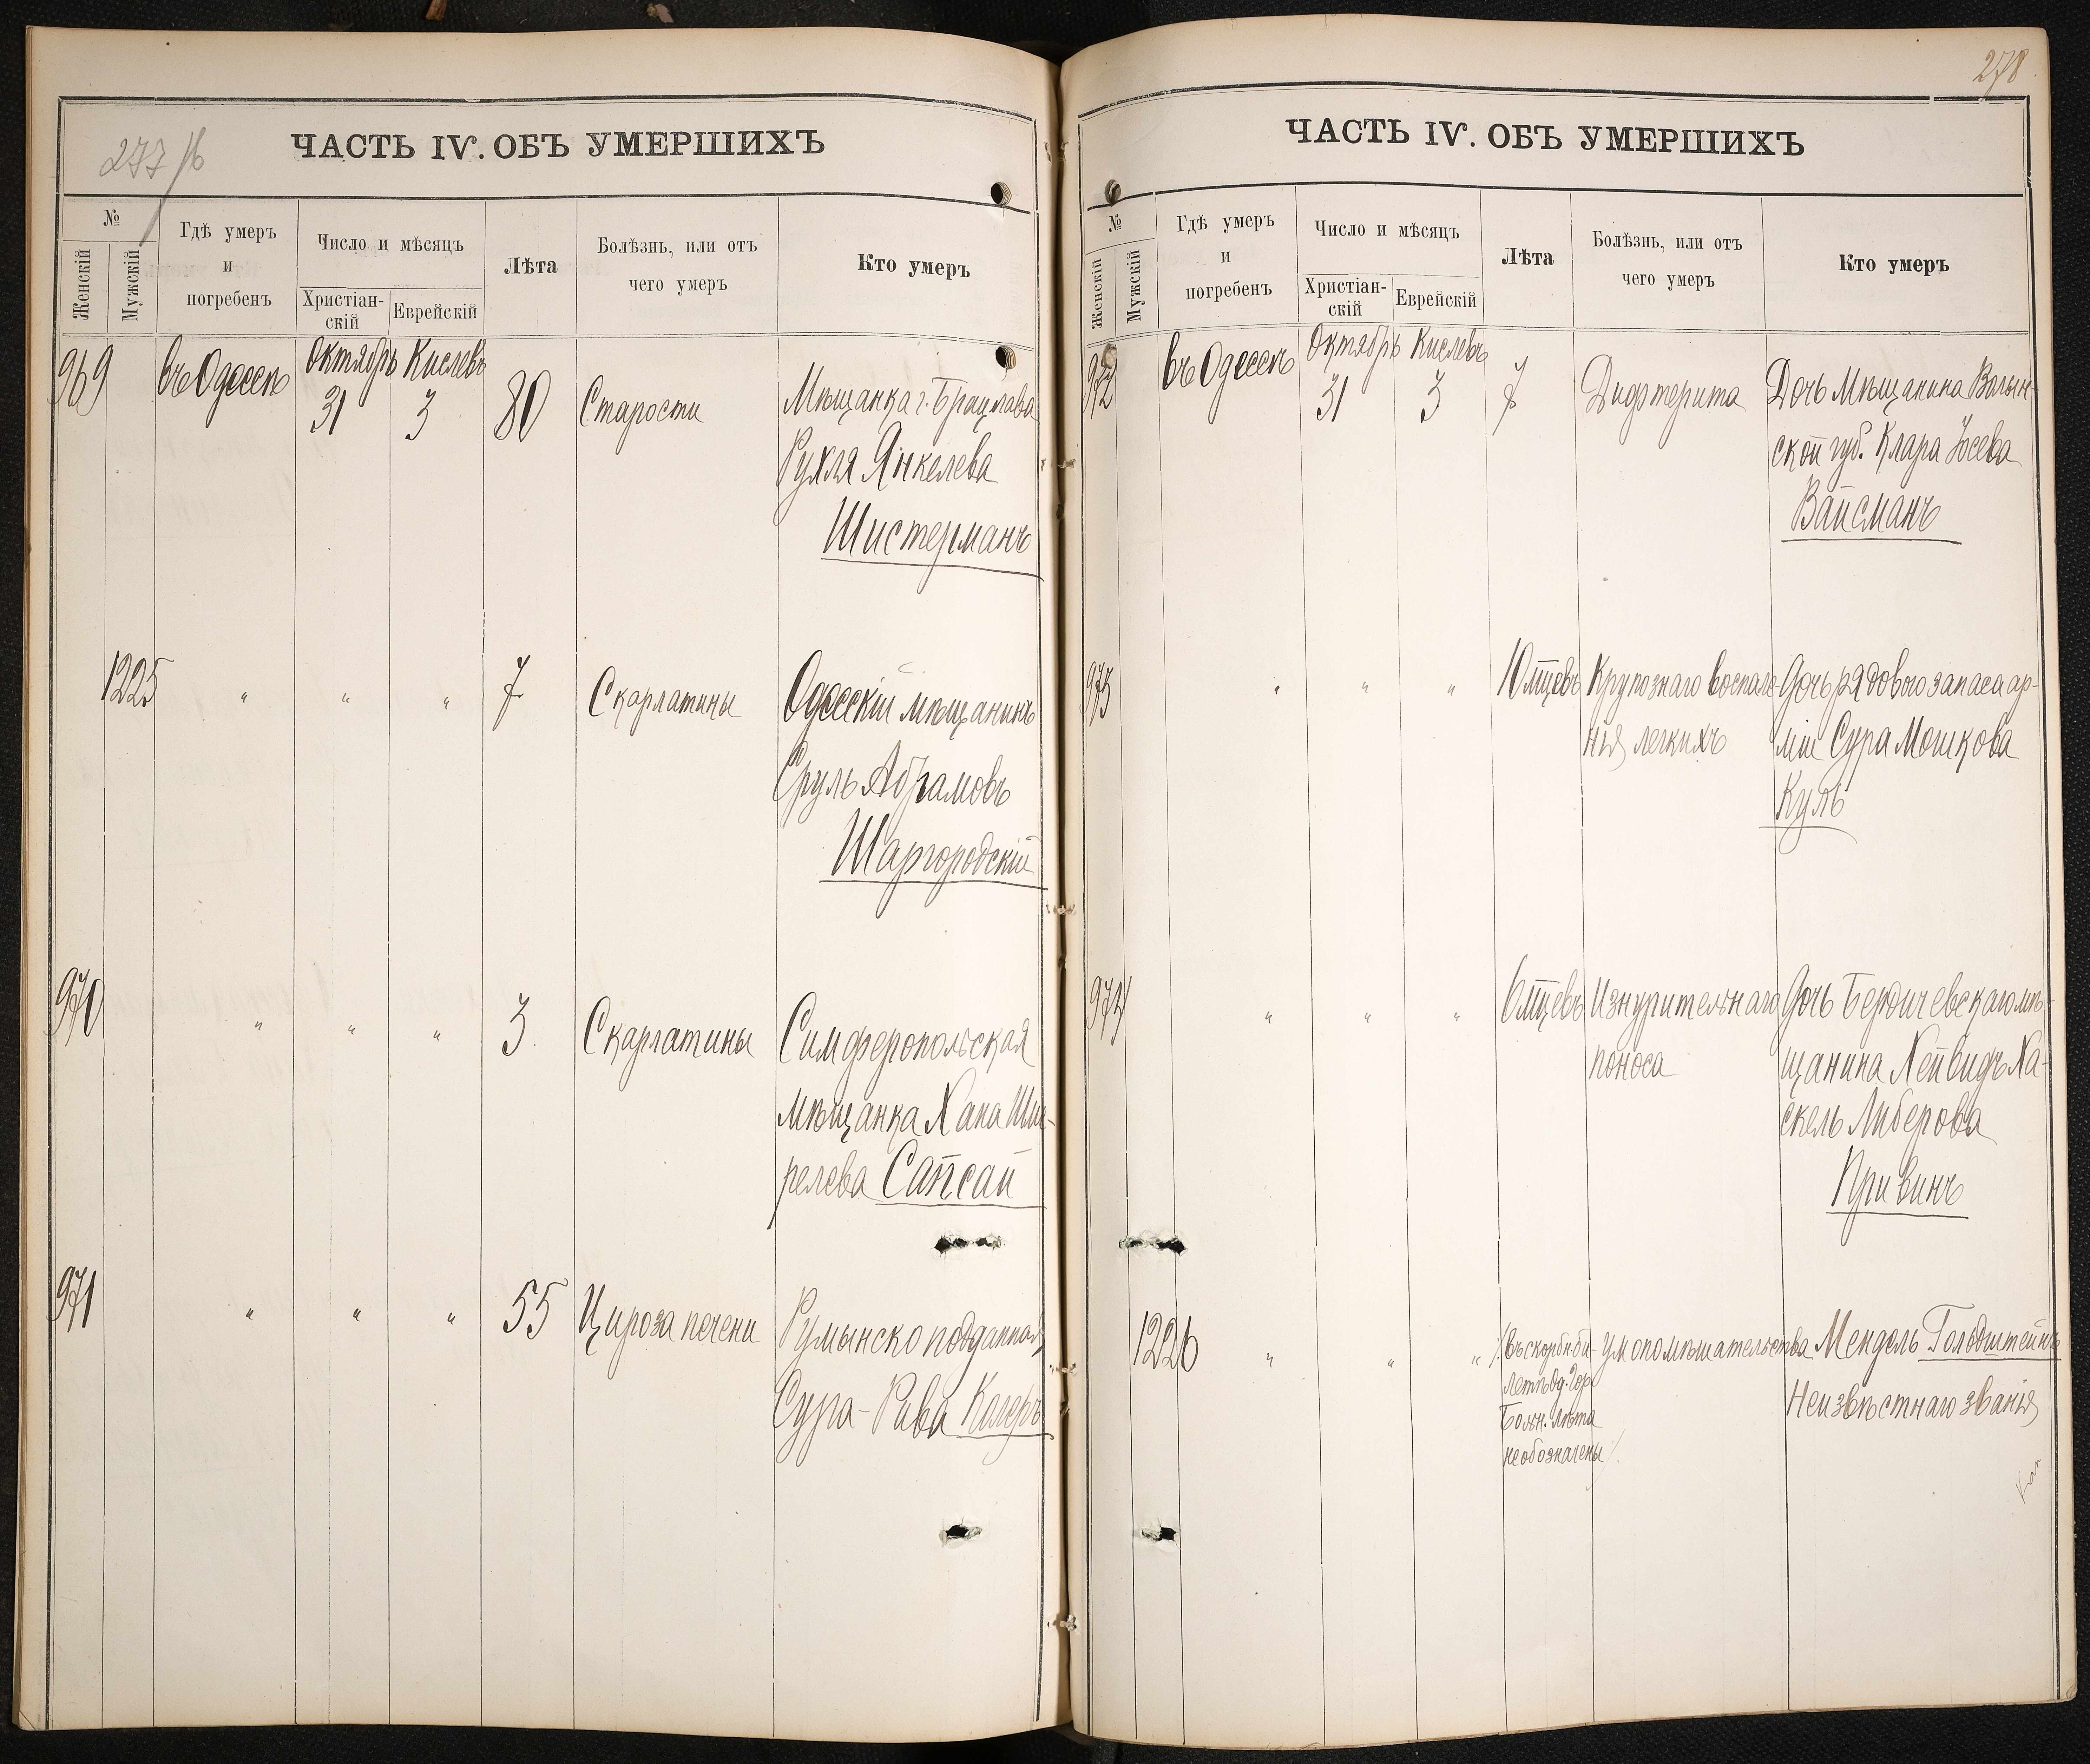 277 об
ЧАСТЬ IV. ОБЪ УМЕРШИХЪ
№
Женскій
Мужскій
Гдѣ умеръ
и
погребенъ
Число и мѣсяцъ
Христіан-
скій
Еврейскій
Лѣта
Болѣзнь, или отъ
чего умеръ
Кто умеръ
969 въ Одессѣ Октябрь 31 Кислевъ 3 80 Старости Мѣщанка г. Брацлава
Рухля Янкелева
Шистерманъ
1225 " " " 7 Скарлатины Одесскій мѣщанинъ
Сруль Абрамовъ
Шаргородскій
970 " " " 3 Скарлатины Симферопольская
мѣщанка Хана Шми-
релева Сапсай
971 " " " 55 Цироза печени Румынско подданная
Сура-Рива Колеръ
278
ЧАСТЬ IV. ОБЪ УМЕРШИХЪ
№
Женскій
Мужскій
Гдѣ умеръ
и
погребенъ
Число и мѣсяцъ
Христіан-
скій
Еврейскій
Лѣта
Болѣзнь, или отъ
чего умеръ
Кто умеръ
972 въ Одессѣ Октябрь 31 Кислевъ 3 7 Дифтерита Дочь Мѣщанина Волын-
ской губ. Клара Іосева
Вайсманъ
973 " " " 10 мцевъ Крупознаго воспале- Дочь рядового запаса ар-
нія легкихъ міи Сура Мошкова
Куль
974 " " " 6 мцевъ Изнурительнаго Дочь Бердичевскаго мѣ-
поноса щанина Хейвидъ Ха-
скель Либерова
Привинъ
1226 " " " /:Въ скорбн. би- Умопомѣшательства Мендель Голодштейнъ
летѣ Од. Гор.
Больн. лѣта Неизвѣстнаго званія
необозначены:/.